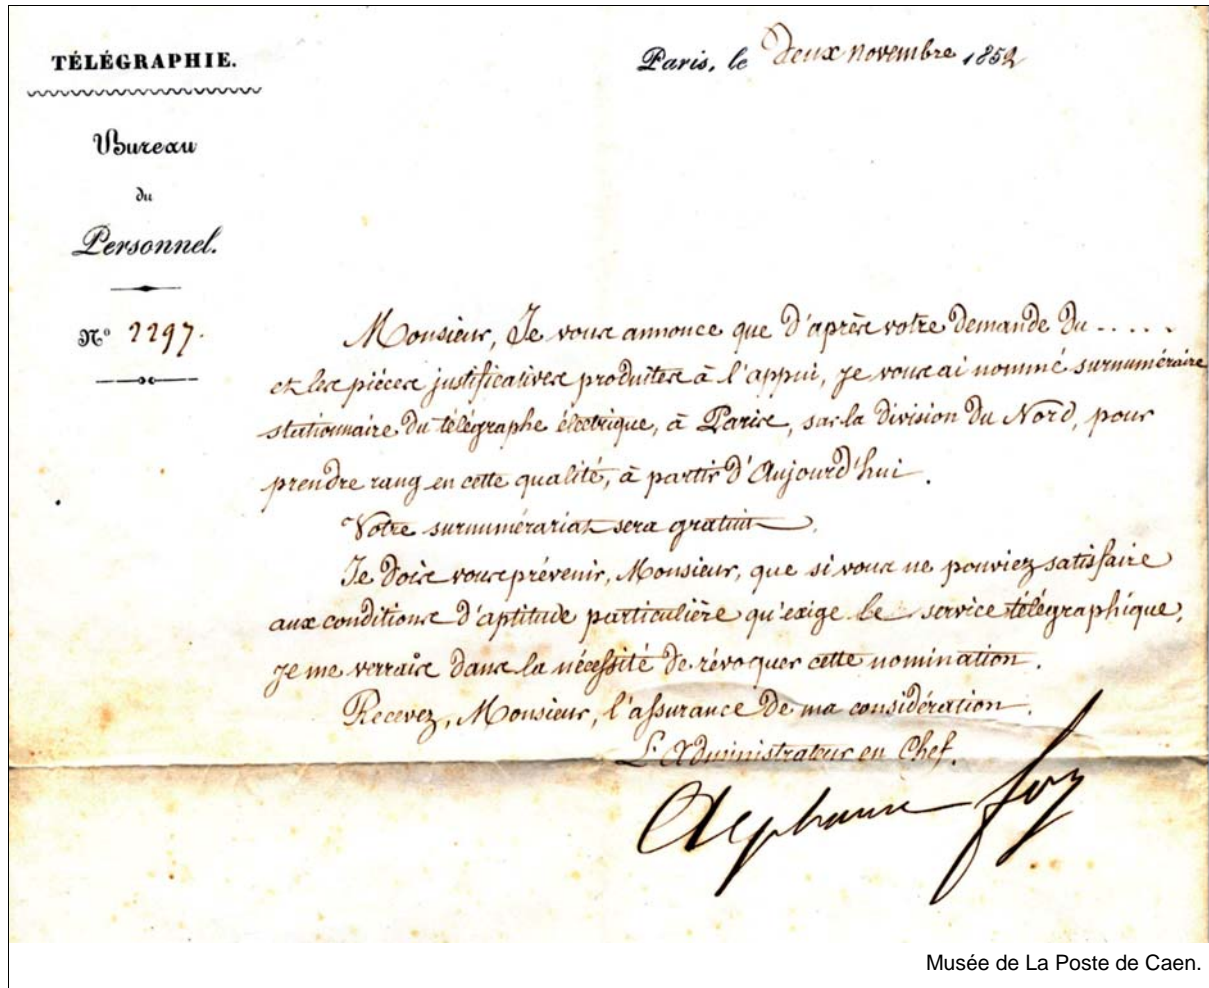 TÉLÉGRAPHIE.
Bureau
du
Personnel.
N° 2297.
Paris, le deux novembre 1852
Monsieur, Je vous annonce que d'après votre demande du .....
et les pièces justificatives produites à l'appui, je vous ai nommé surnuméraire
stationnaire du télégraphe électrique, à Paris, sur la division du Nord, pour
prendre rang en cette qualité, à partir d'Aujourd'hui.
Votre surnumérariat sera gratuit.
Je dois vous prévenir, Monsieur, que si vous ne pouviez satisfaire
aux conditions d'aptitude particulière qu'exige le service télégraphique,
je me verrais dans la nécessité de révoquer cette nomination.
Recevez, Monsieur, l'assurance de ma considération.
L'Administrateur en Chef.
Alphonse Foy
Musée de La Poste de Caen.